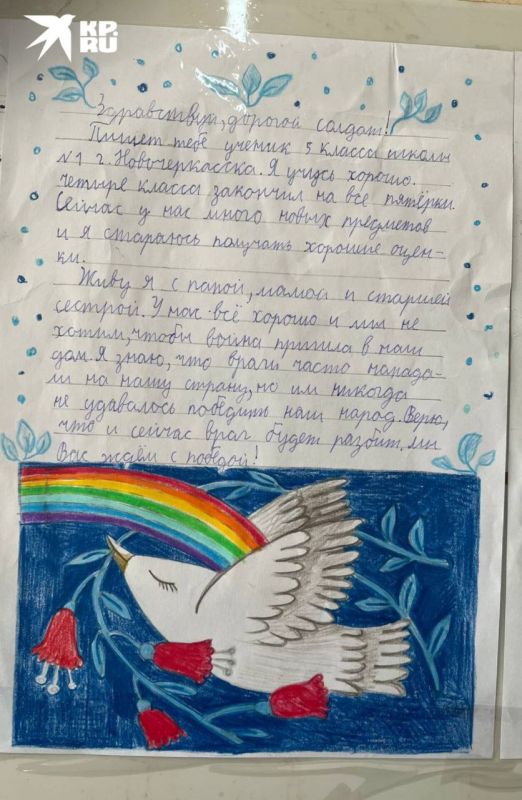 KP.RU
Здравствуй, дорогой солдат!
Пишет тебе ученик 5 класса школы
№1 г. Новочеркасска. Я учусь хорошо.
четыре класса закончил на все пятёрки.
Сейчас у нас много новых предметов
и я стараюсь получать хорошие оцен-
ки.
Живу я с папой, мамой и старшей
сестрой. У нас всё хорошо и мы не
хотим, чтобы война пришла в наш
дом. Я знаю, что враги часто напада-
ли на нашу страну, но им никогда
не удавалось победить наш народ. Верю,
что и сейчас враг будет разбит, мы
Вас ждём с победой!